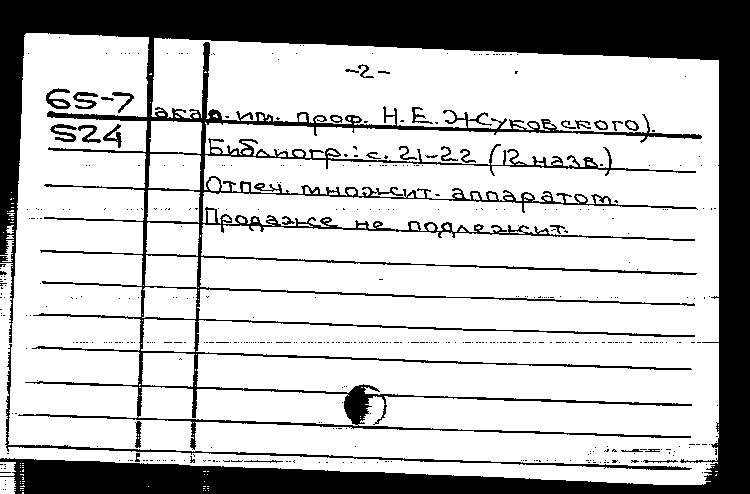 -2-
65-7
акад. им. проф. Н. Е. Жуковского).
524
Библиогр.: с. 21-22 (12 назв.)
Отпеч. множит. аппаратом.
Продаже не подлежит.